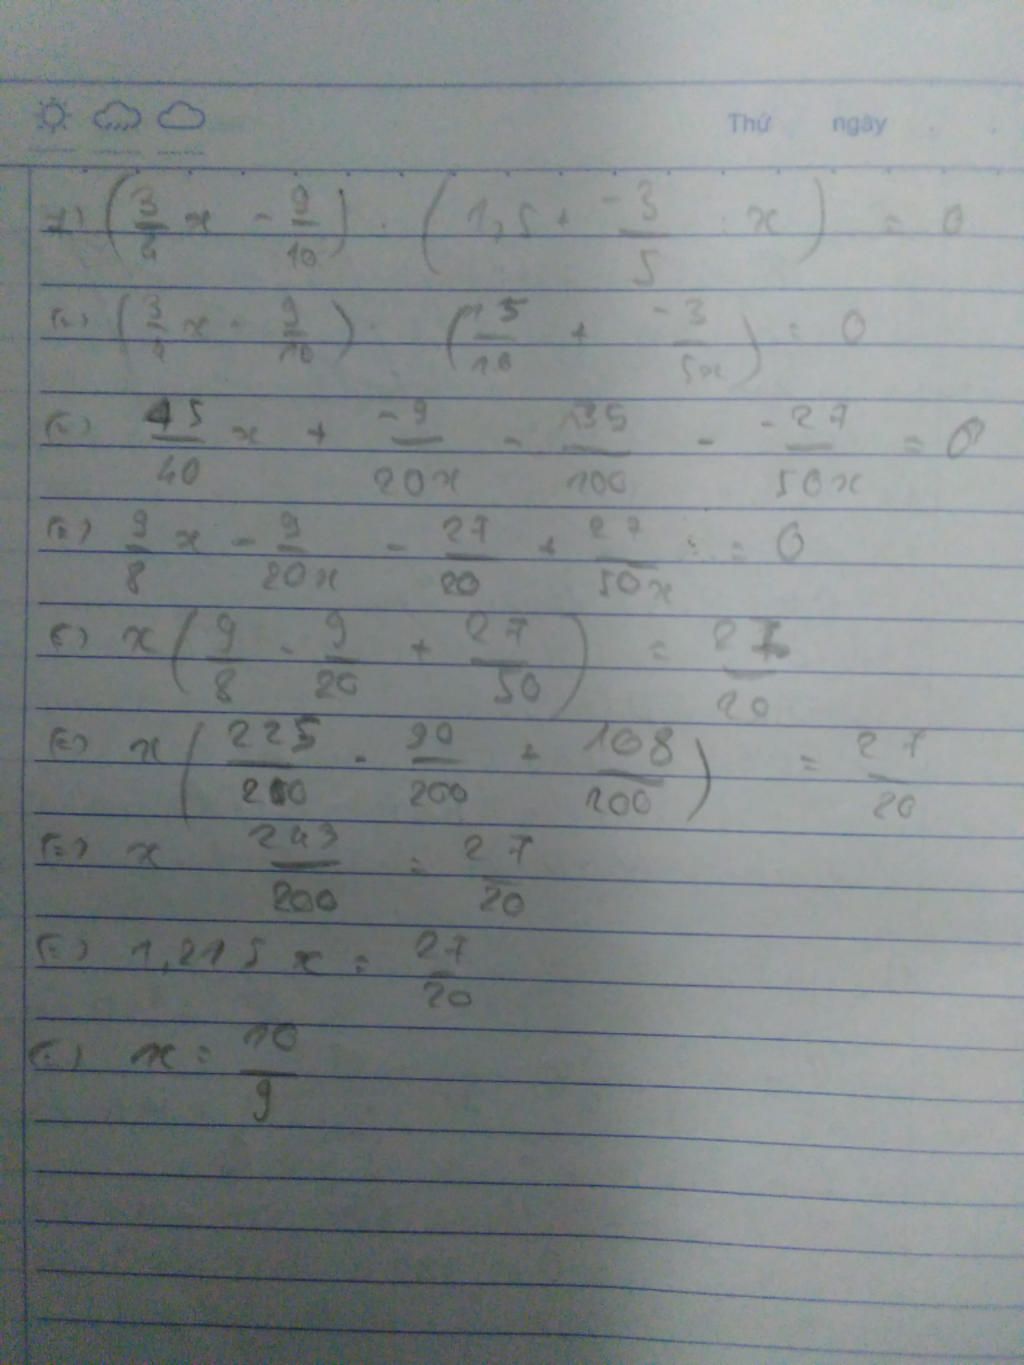 Thứ ngày
(3/4 x - 9/10) . (1,5 + -3/5 : x) = 0
(=) (3/4 x - 9/10) . (15/10 + -3/5x) = 0
(=) 45/40 x + -9/20x - 135/100 - -27/50x = 0
(=) 9/8 x - 9/20x - 27/20 + 27/50x = 0
(=) x (9/8 - 9/20 + 27/50) = 27/20
(=) x (225/200 - 90/200 + 108/200) = 27/20
(=) x 243/200 = 27/20
(=) 1,215 x = 27/20
(=) x = 10/9